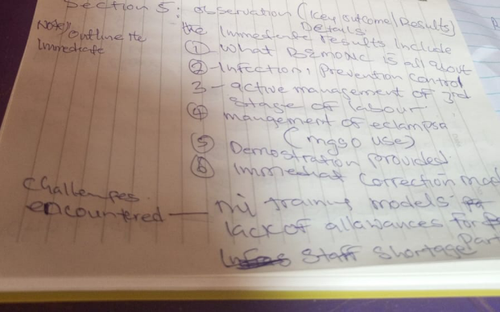 Section 5: observation (key outcome/Results)
Details
Note: Outline the Immediate
the Immediate Results Include
① What BEmONC is all about
② - Infections, Prevention control
3 - active management of 3rd
stage of labour.
④ mangement of eclampsa
(mgso use)
⑤ Demostration provided
⑥ Immediat correction mad
Challenges
encountered — nil training models
lack of allawances for
Staff shortage